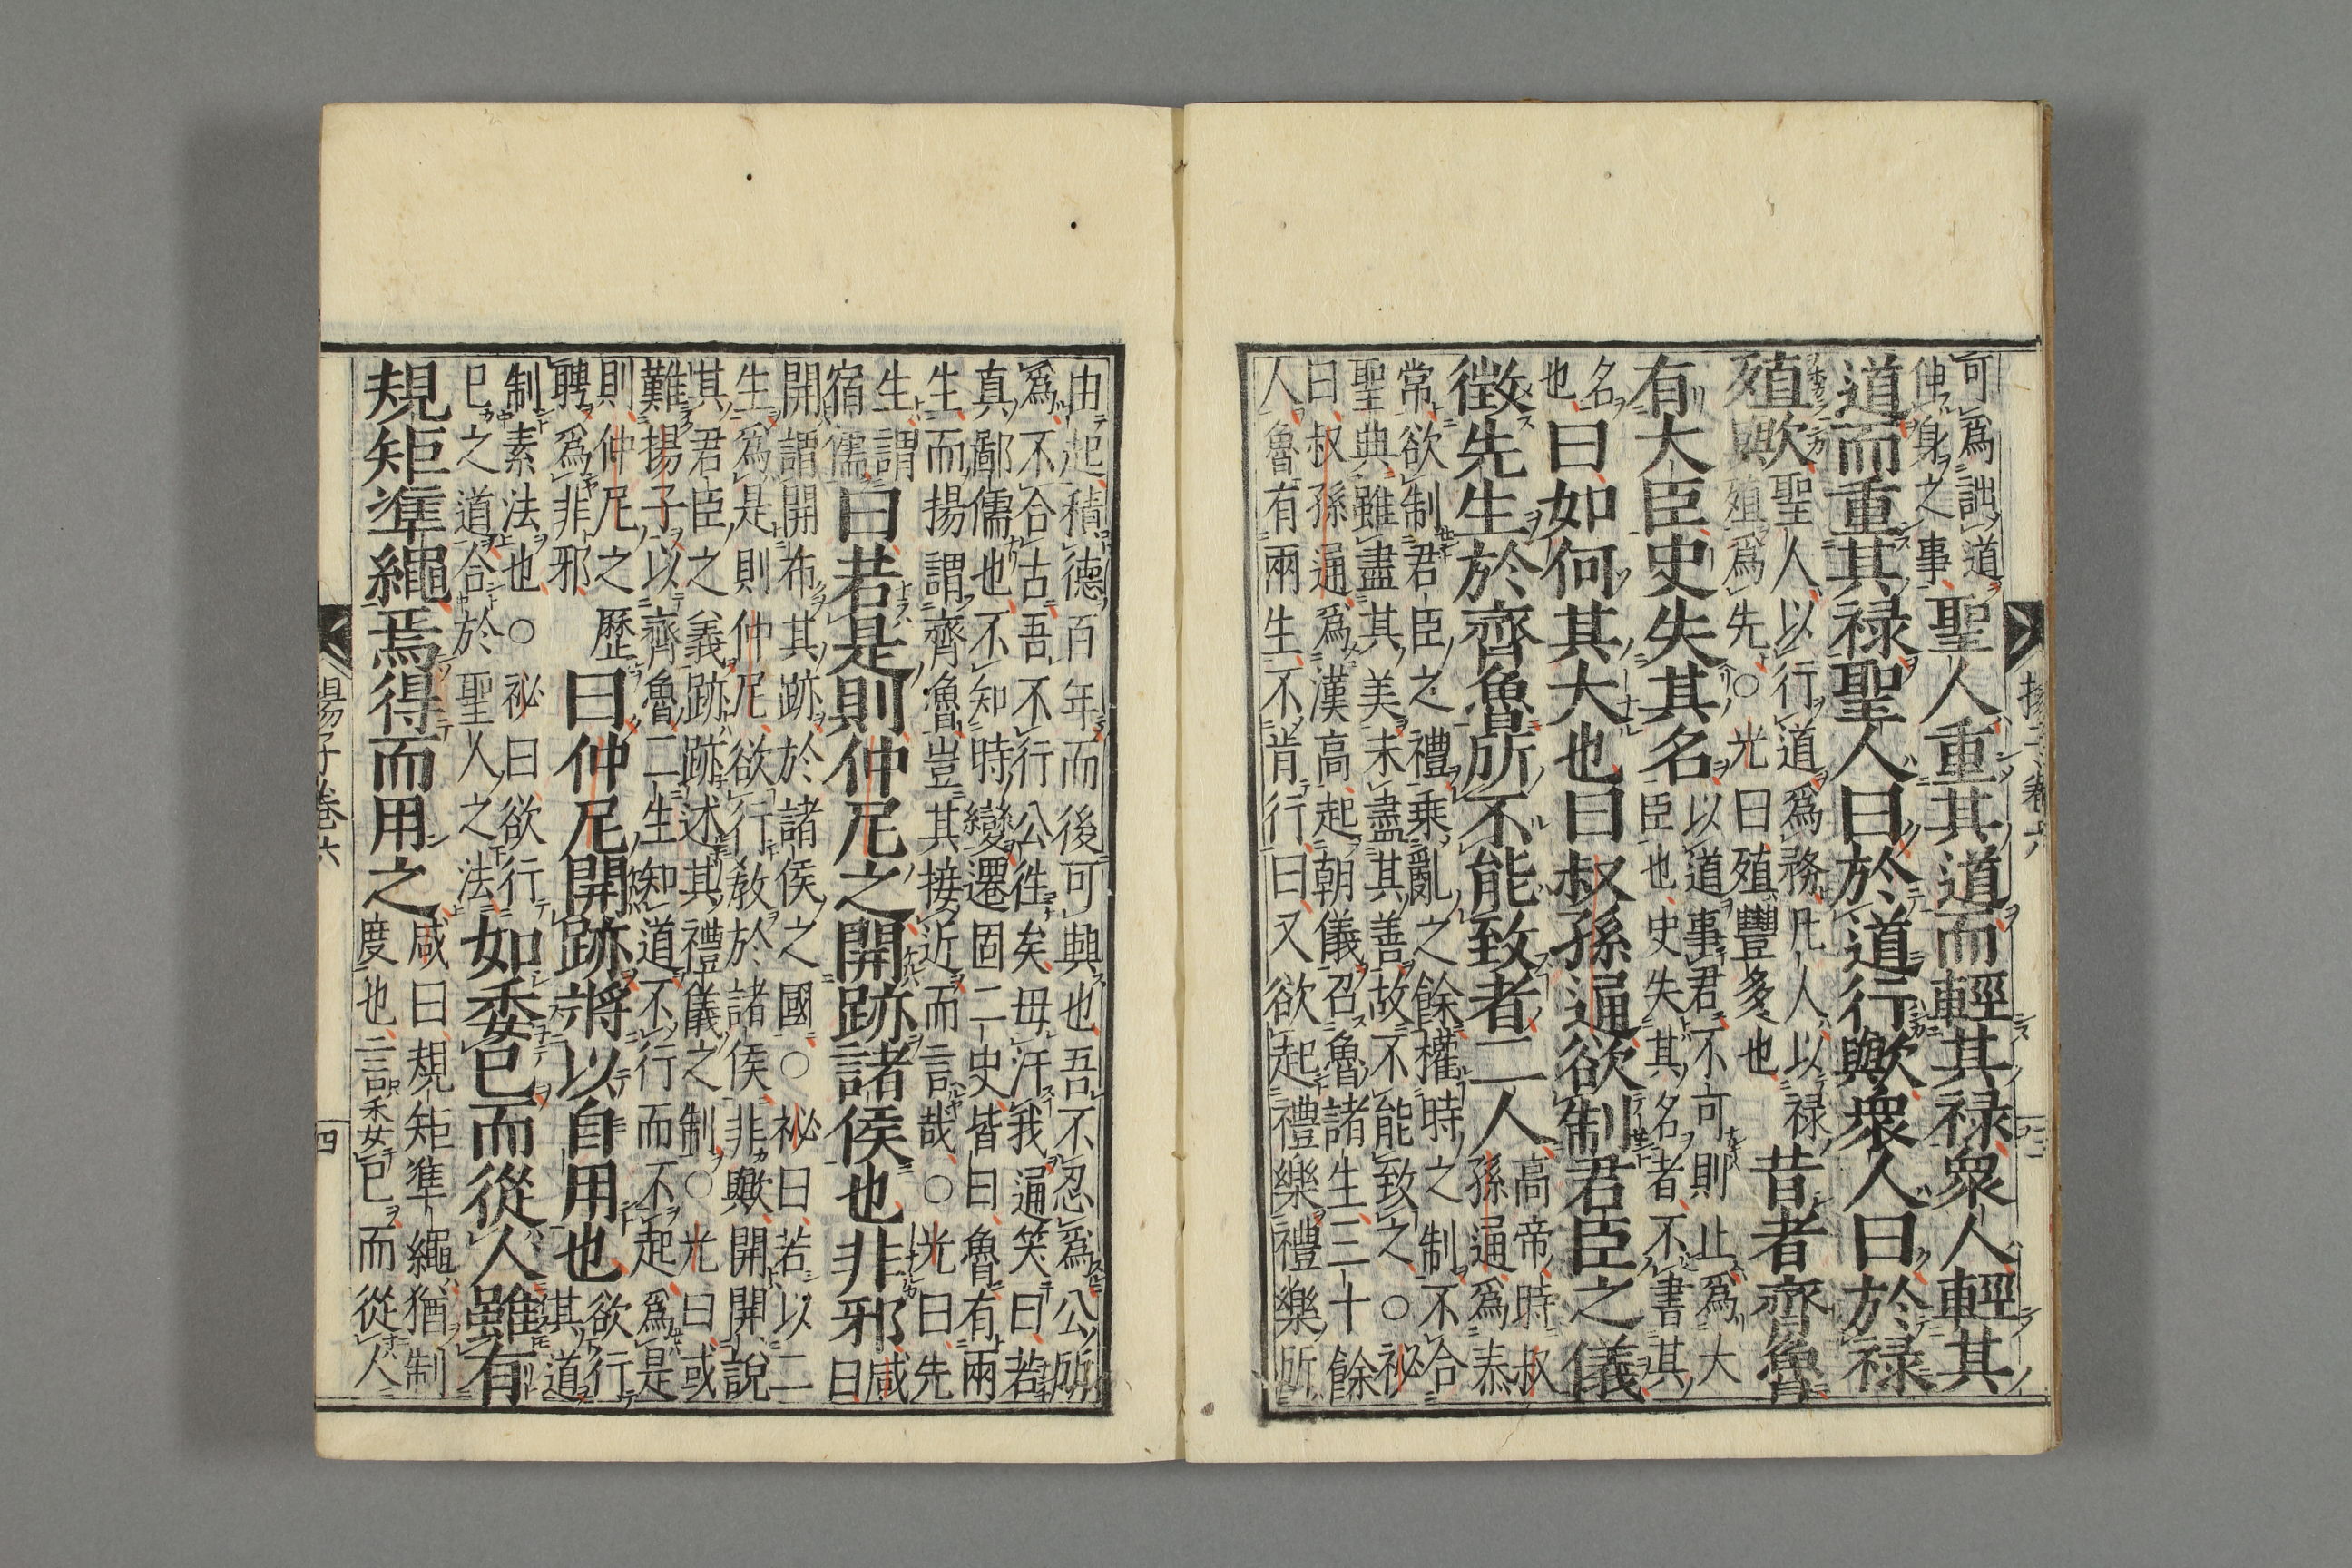 可為詘道
伸身之事
聖人重其道而輕其禄衆人輕其
道而重其禄聖人曰於道行歟衆人曰於禄
殖歟
聖人以行道為務凡人以禄
殖為先○光曰殖豐多也
昔者齊魯
有大臣史失其名
以道事君不可則止為大
臣也史失其名者不書其
名
也
曰如何其大也曰叔孫通欲制君臣之儀
徴先生於齊魯所不能致者二人
高帝時叔
孫通為泰
常欲制君臣之禮乗亂之餘權時之制不合
聖典雖盡其美未盡其善故不能致之○祕
曰叔孫通為漢高起朝儀召魯諸生三十餘
人魯有兩生不肯行曰又欲起禮樂禮樂所
由起積德百年而後可興也吾不忍為公所
為不合古吾不行公徃矣毋汙我通笑曰若
真鄙儒也不知時變還固二史皆曰魯有兩
生而揚謂齊魯豈其接近而言哉○光曰先
生謂
宿儒
曰若是則仲尼之開跡諸侯也非邪
咸
曰
開謂開布其跡於諸侯之國○祕曰若以二
生為是則仲尼欲行教於諸侯非歟開開說
其君臣之義跡跡述其禮儀之制○光曰或
難揚子以齊魯二生知道不行而不起為是
則仲尼之歷
聘為非邪
曰仲尼開跡將以自用也
欲行
其道
制素法也○祕曰欲行
已之道合於聖人之法
如委已而從人雖有
規矩準繩焉得而用之
咸曰規矩準繩猶制
度也言委已而從人
揚子卷六
四